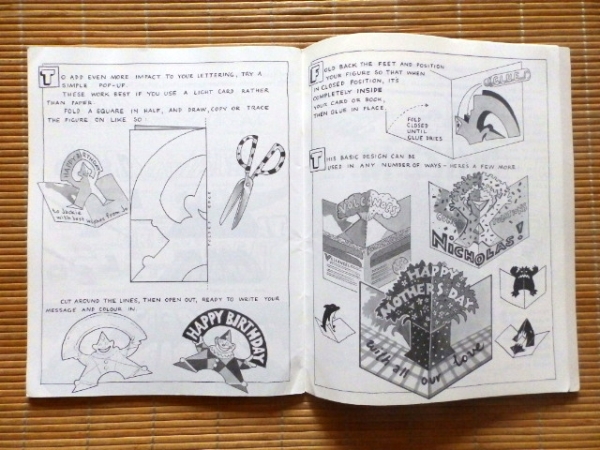 TO ADD EVEN MORE IMPACT TO YOUR LETTERING, TRY A
SIMPLE POP-UP.
THESE WORK BEST IF YOU USE A LIGHT CARD RATHER
THAN PAPER.
FOLD A SQUARE IN HALF, AND DRAW, COPY OR TRACE
THE FIGURE ON LIKE SO:
HAPPY BIRTHDAY
to Jackie
with best wishes from Jo
FOLDED EDGE
CUT AROUND THE LINES, THEN OPEN OUT, READY TO WRITE YOUR
MESSAGE AND COLOUR IN.
HAPPY BIRTHDAY
FOLD BACK THE FEET AND POSITION
YOUR FIGURE SO THAT WHEN
IN CLOSED POSITION, IT'S
COMPLETELY INSIDE
YOUR CARD OR BOOK,
THEN GLUE IN PLACE.
FOLD
CLOSED
UNTIL
GLUE DRIES
THIS BASIC DESIGN CAN BE
USED IN ANY NUMBER OF WAYS - HERE'S A FEW MORE.
VOLCANOES
NICHOLAS!
HAPPY
MOTHER'S DAY
with all our love